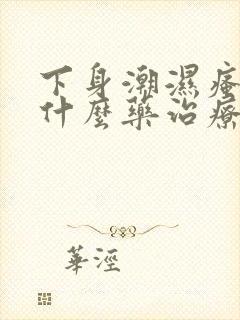 下身潮濕瘙
什麼藥治療
華涇